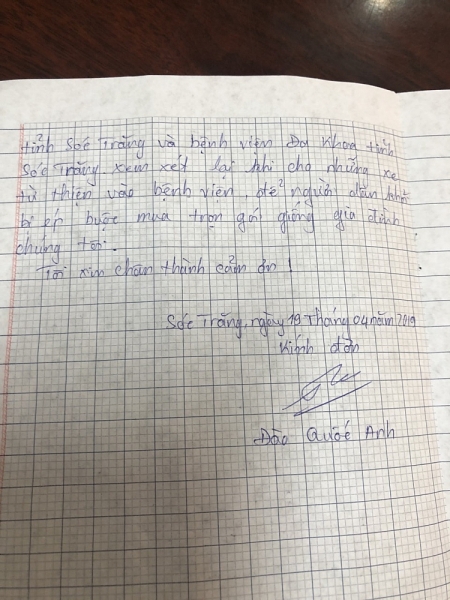 tỉnh Sóc Trăng và bệnh viện Đa Khoa tỉnh
Sóc Trăng. xem xét lại khi cho những xe
từ thiện vào bệnh viện. để người dân khỏi
bị ép buộc mua trọn gói giống gia đình
chúng tôi.
Tôi xin chân thành cảm ơn!
Sóc Trăng, ngày 19 Tháng 04 năm 2019
Kính đơn
Đào Quốc Anh